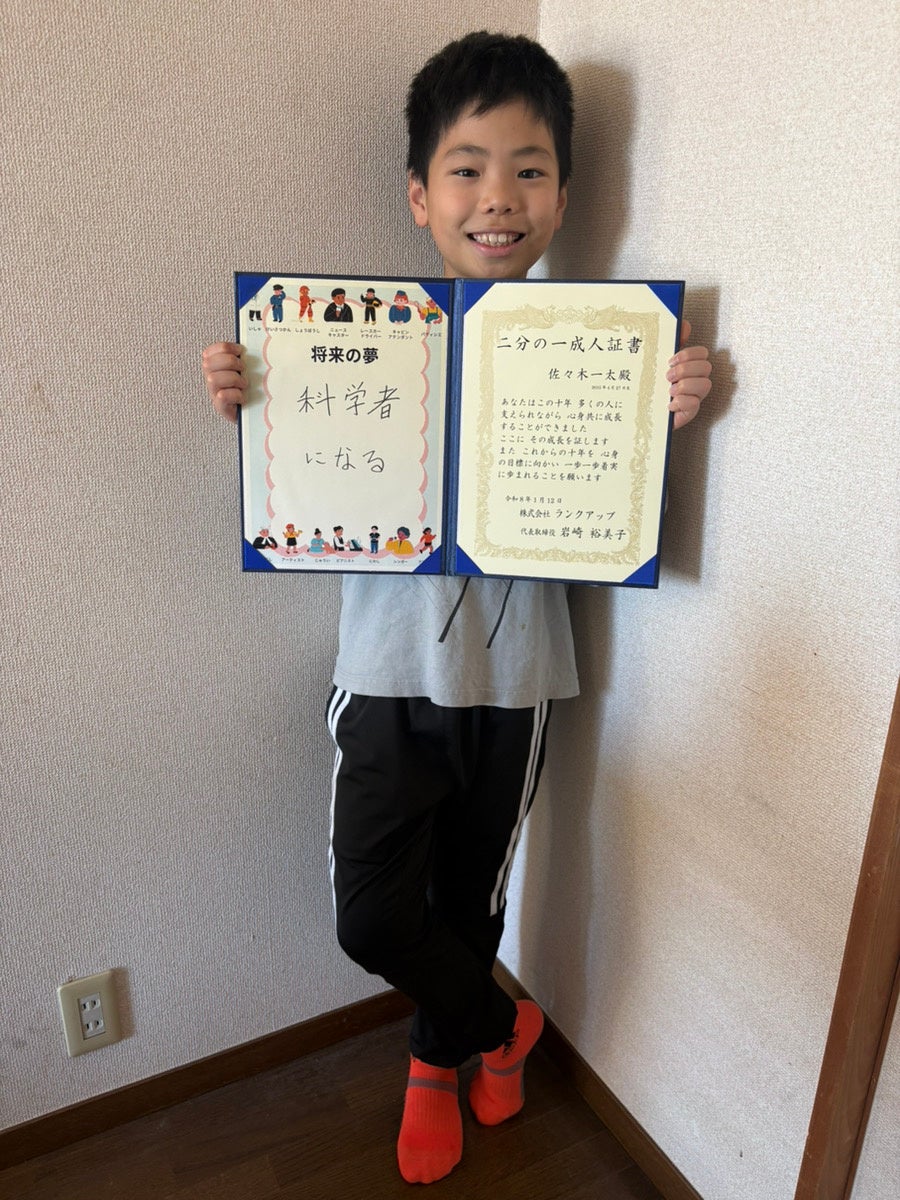 いしゃ けいさつかん しょうぼうし ニュースキャスター レースカードライバー キャビンアテンダント パティシエ
将来の夢
科学者
になる
アーティスト じゅうい ピアニスト シンガー
二分の一成人証書
佐々木一太殿
あなたはこの十年 多くの人に
支えられながら 心身共に成長
することができました
ここに その成長を証します
また これからの十年を 心身
の目標に向かい 一歩一歩着実
に歩まれることを願います
令和8年1月12日
株式会社 ランクアップ
代表取締役 岩﨑 裕美子